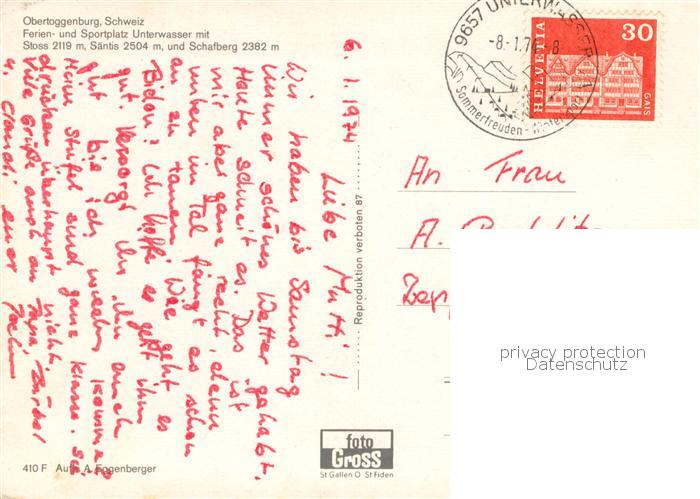 Obertoggenburg, Schweiz
Ferien- und Sportplatz Unterwasser mit
Stoss 2119 m, Säntis 2504 m, und Schafberg 2382 m
9657 UNTERWASSER
-8.-1.74-8
Sommerfreuden - Winter
HELVETIA
30
GAIS
6. 1. 1974
Liebe Mutti!
Wir haben bis Samstag
immer schönes Wetter gehabt.
Heute schneit es. Das ist
mir aber ganz recht, denn
unten im Tal fängt es schon
an zu tauen. Wie geht es
Bidou? Ich hoffe es geht ihm
gut. Versorgt ihn auch
gut bis ich wieder komme.
Meine Stiefel sind ganz klasse. Sie
drücken überhaupt nicht.
Viele Grüße auch an Papa,
u. Claudi, euer
An Frau
A.
Reproduktion verboten 87
foto
GROSS
St Gallen O St Fiden
410 F Aufn. A. Eggenberger
privacy protection
Datenschutz